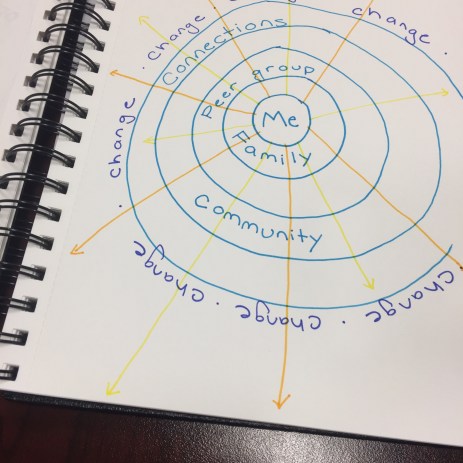 change . change .
Connections
change
Peer group
Me
Family
Community
change . change . change . change